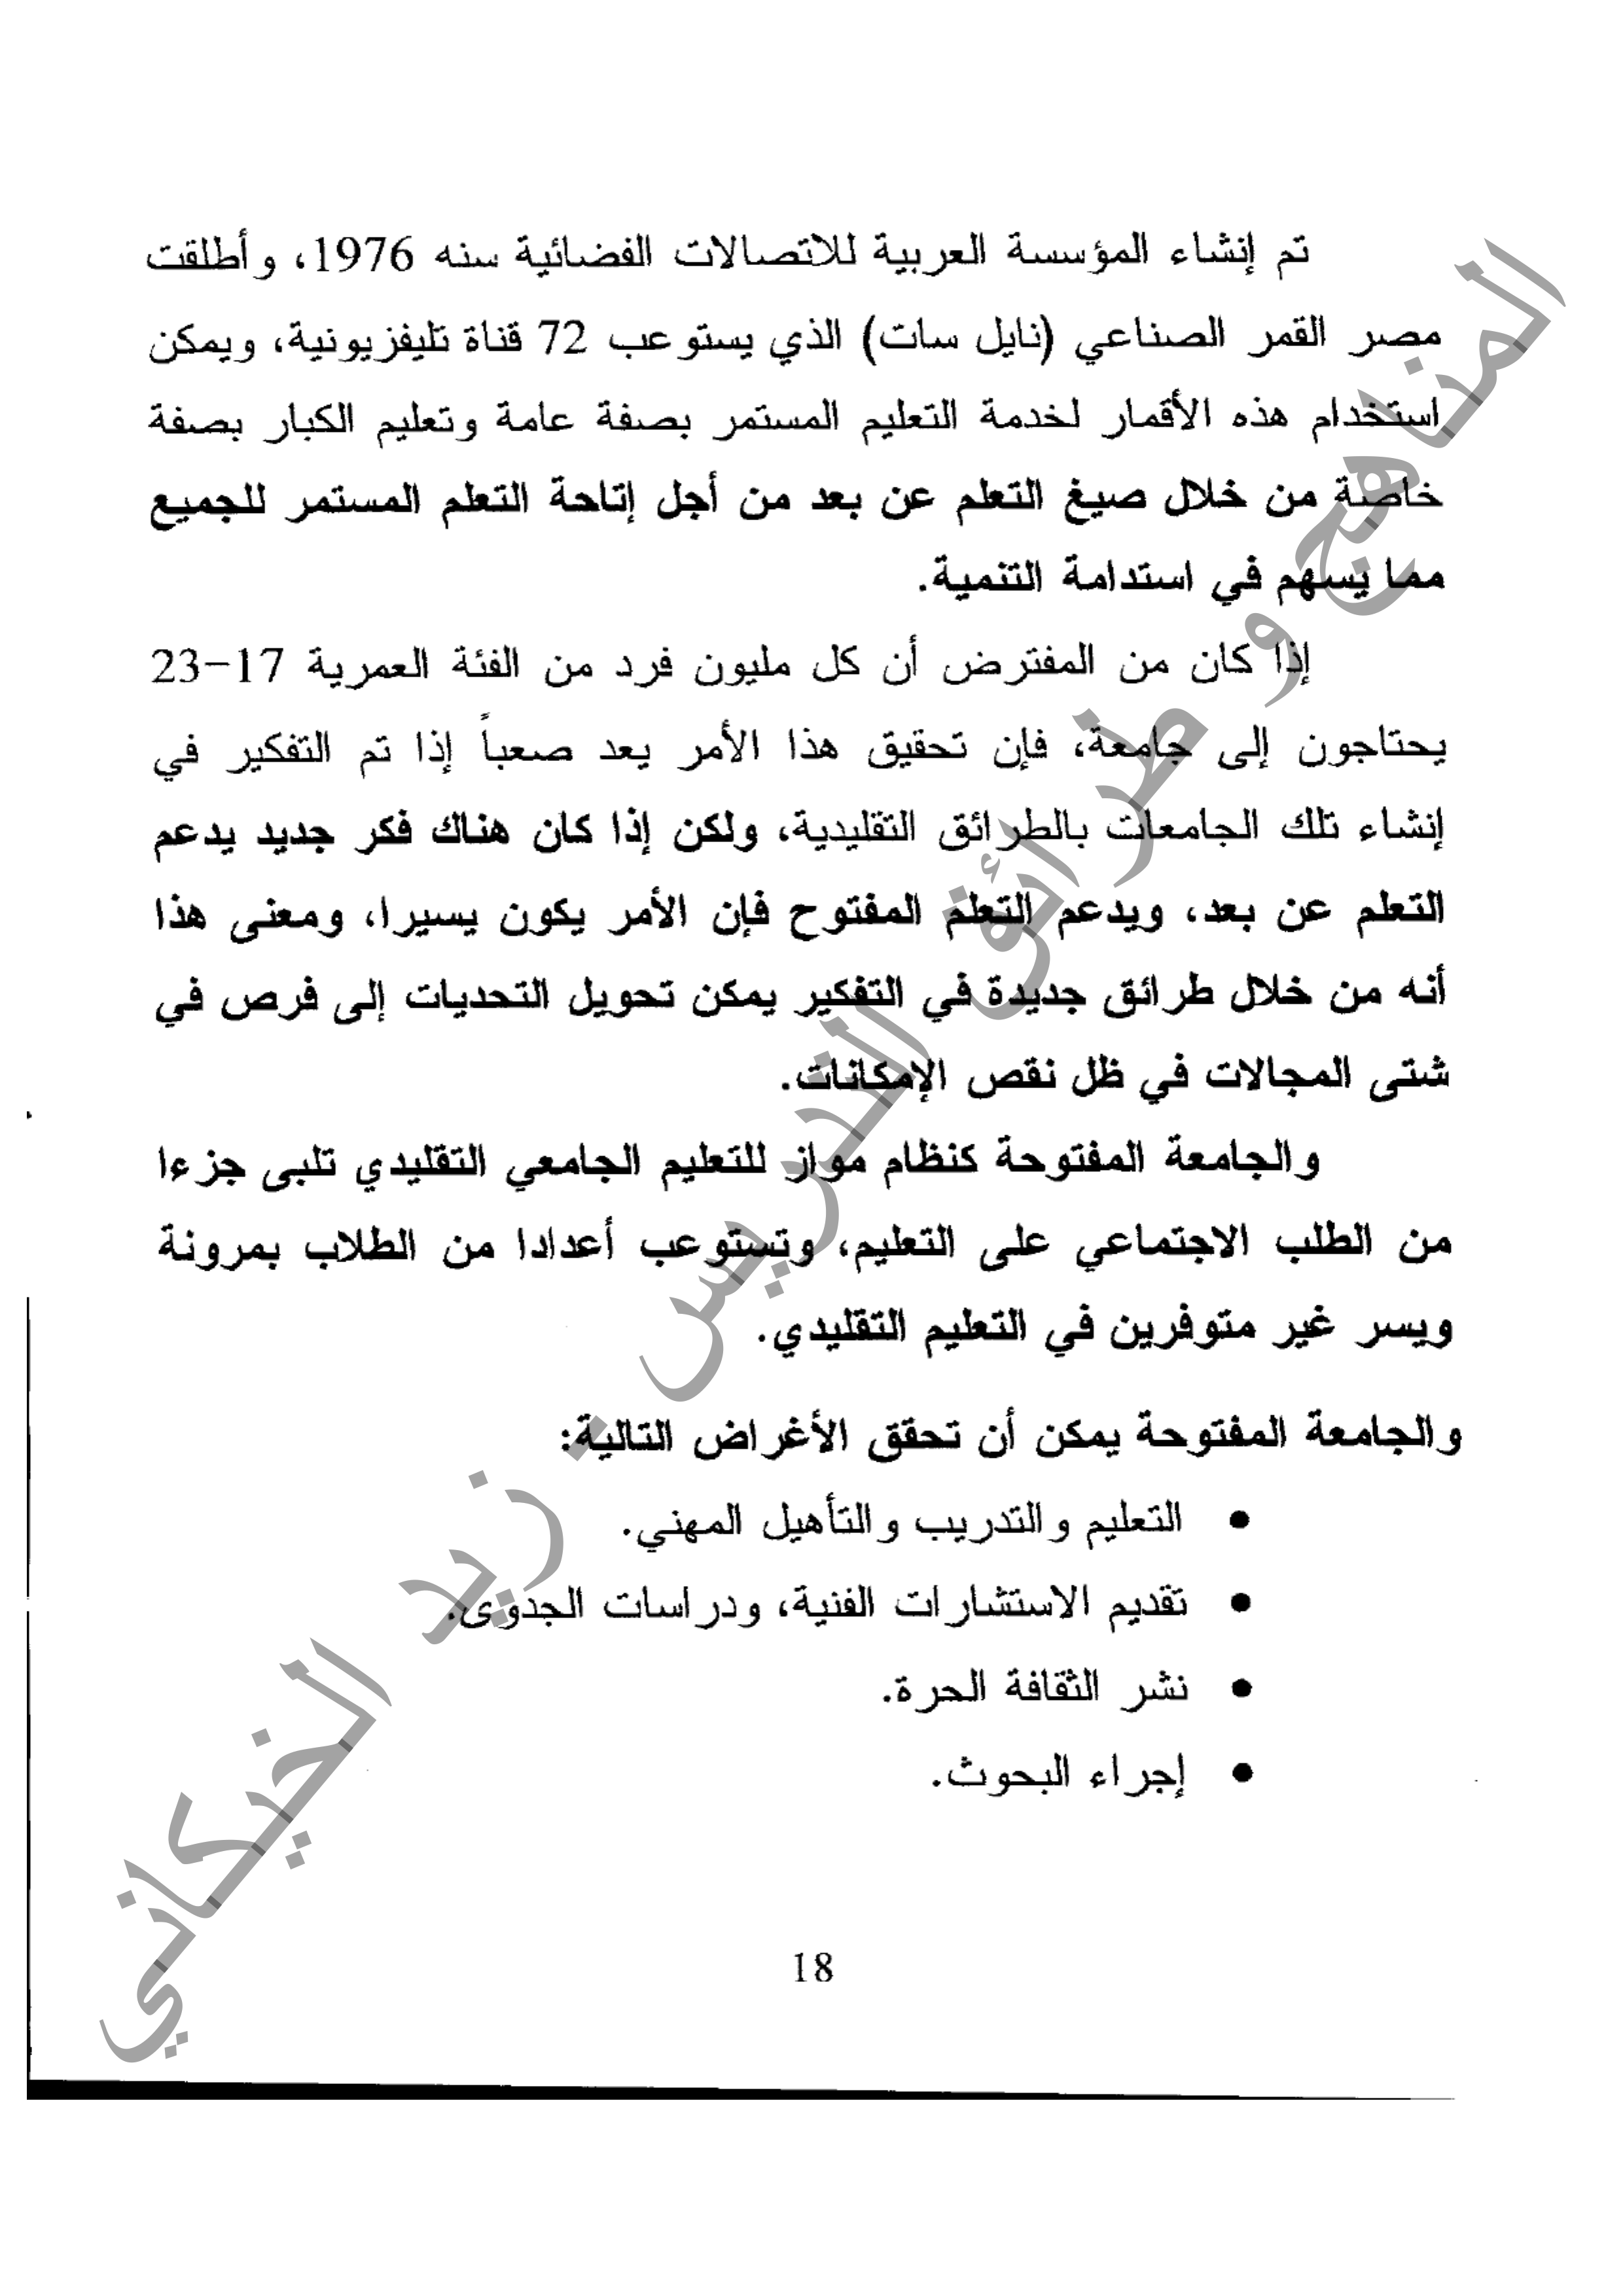 تم إنشاء المؤسسة العربية للاتصالات الفضائية سنه 1976، وأطلقت
مصر القمر الصناعي (نايل سات) الذي يستوعب 72 قناة تليفزيونية، ويمكن
استخدام هذه الأقمار لخدمة التعليم المستمر بصفة عامة وتعليم الكبار بصفة
خاصة من خلال صيغ التعلم عن بعد من أجل إتاحة التعلم المستمر للجميع
مما يسهم في استدامة التنمية.
إذا كان من المفترض أن كل مليون فرد من الفئة العمرية 17-23
يحتاجون إلى جامعة، فإن تحقيق هذا الأمر يعد صعباً إذا تم التفكير في
إنشاء تلك الجامعات بالطرائق التقليدية، ولكن إذا كان هناك فكر جديد يدعم
التعلم عن بعد، ويدعم التعلم المفتوح فإن الأمر يكون يسيرا، ومعنى هذا
أنه من خلال طرائق جديدة في التفكير يمكن تحويل التحديات إلى فرص في
شتى المجالات في ظل نقص الإمكانات.
والجامعة المفتوحة كنظام مواز للتعليم الجامعي التقليدي تلبى جزءا
من الطلب الاجتماعي على التعليم، وتستوعب أعدادا من الطلاب بمرونة
ويسر غير متوفرين في التعليم التقليدي.
والجامعة المفتوحة يمكن أن تحقق الأغراض التالية:
• التعليم والتدريب والتأهيل المهني.
• تقديم الاستشارات الفنية، ودراسات الجدوى.
• نشر الثقافة الحرة.
• إجراء البحوث.
18
المناهج وطرائق التدريس . زيد الخيكاني